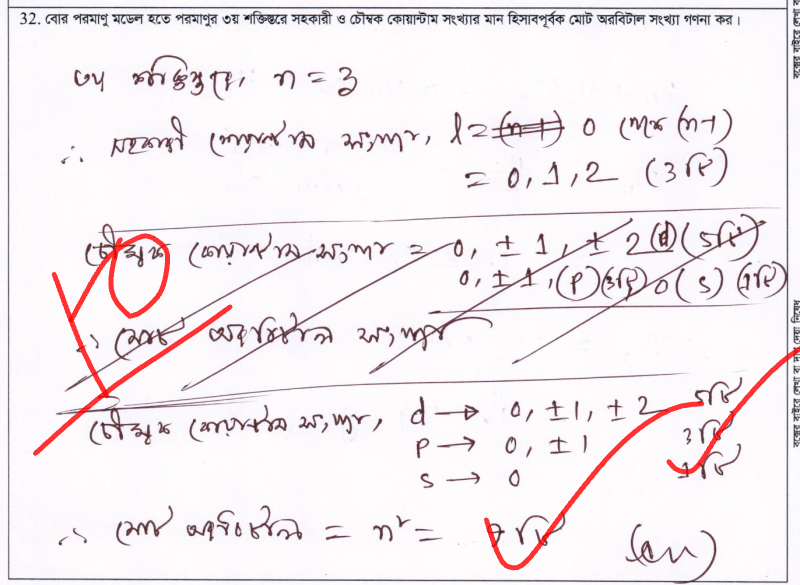 32. বোর পরমাণু মডেল হতে পরমাণুর ৩য় শক্তিস্তরে সহকারী ও চৌম্বক কোয়ান্টাম সংখ্যার মান হিসাবপূর্বক মোট অরবিটাল সংখ্যা গণনা কর।
৩য় শক্তিস্তরে, n = 3
∴ সহকারী কোয়ান্টাম সংখ্যা, l = 0 থেকে (n-1)
= 0, 1, 2 (3টি)
চৌম্বক কোয়ান্টাম সংখ্যা = 0, ± 1, ± 2 (d) (5টি)
0, ± 1, (p) (3টি) 0 (s) (1টি)
∴ মোট অরবিটাল সংখ্যা
চৌম্বক কোয়ান্টাম সংখ্যা, d → 0, ±1, ± 2 5টি
p → 0, ±1 3টি
s → 0 1টি
∴ মোট অরবিটাল = n² = টি (Ans)